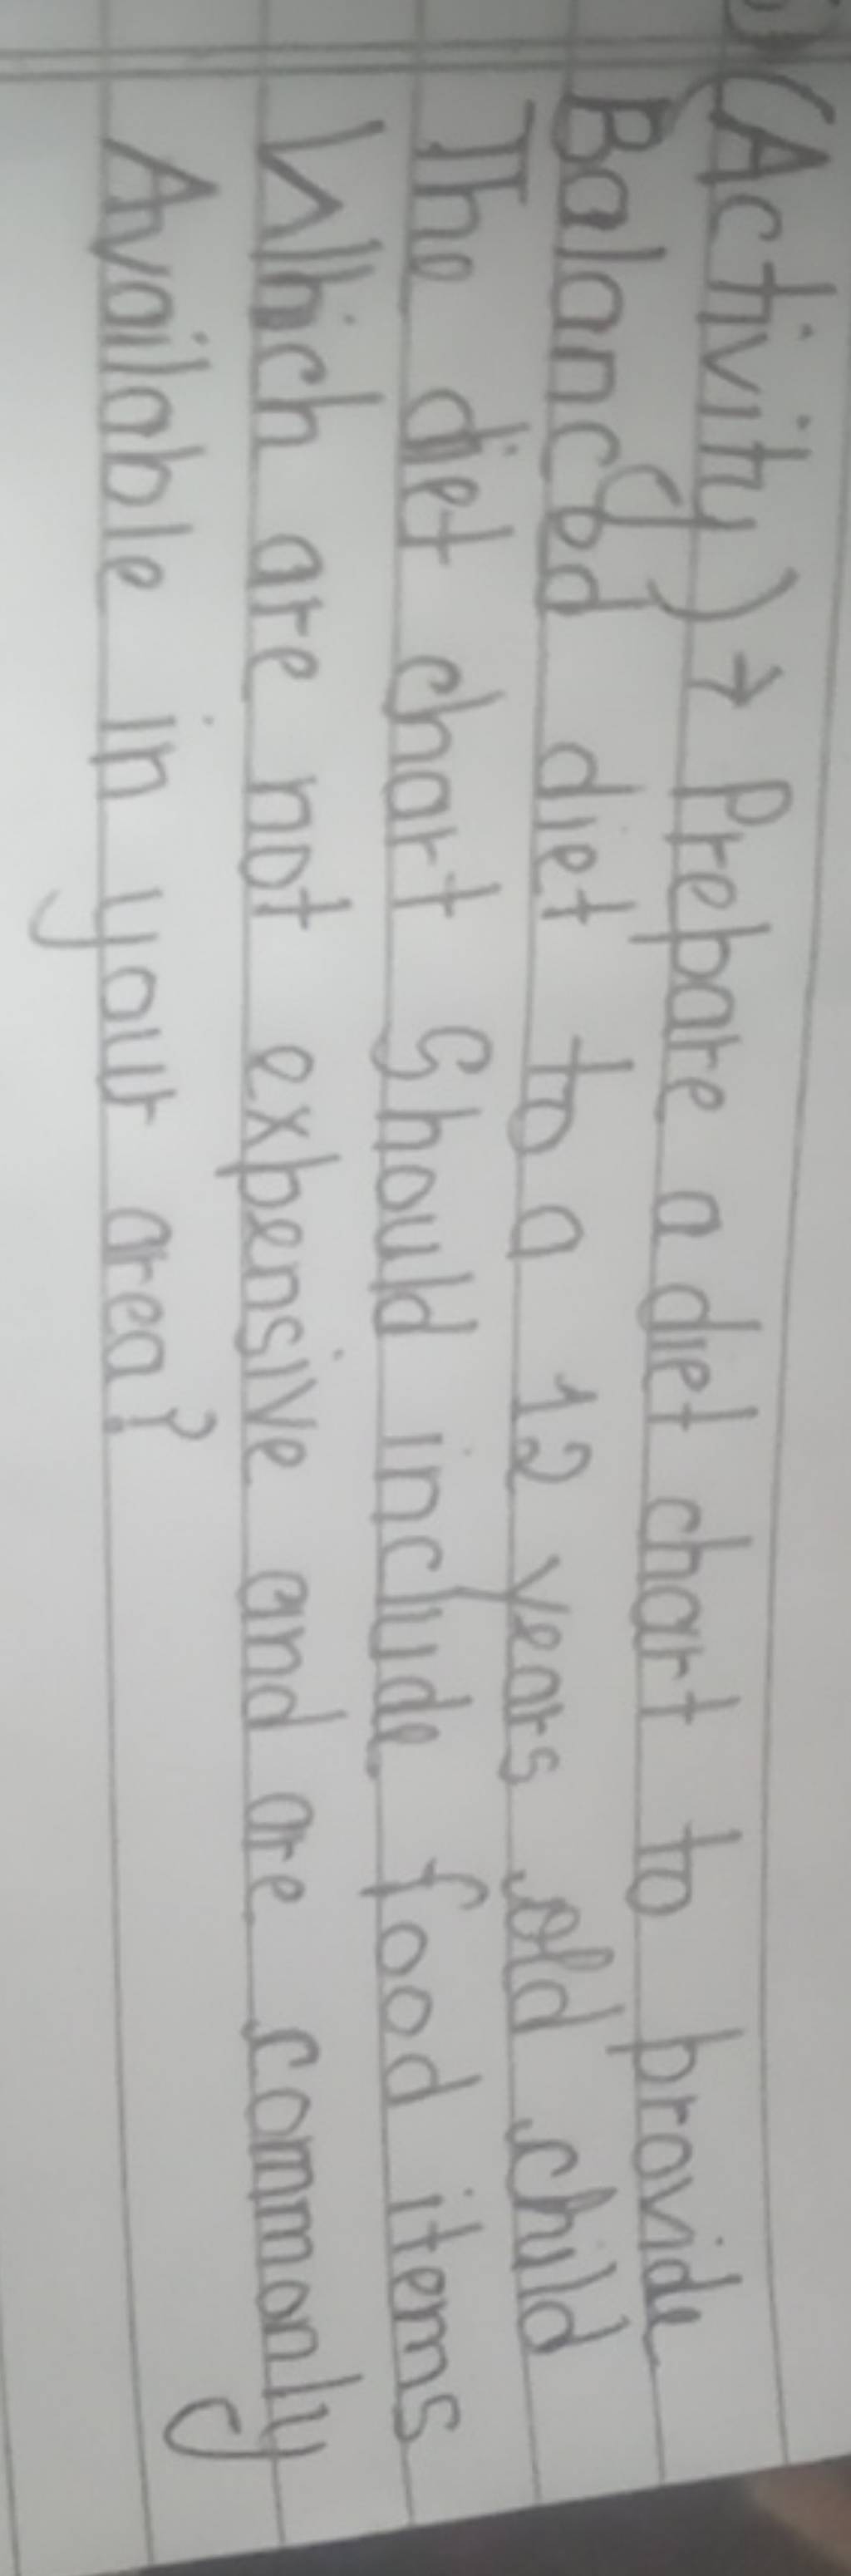 (Activity) → Prepare a diet chart to provide
Balanced diet to a 12 years old child
The diet chart Should include food items
Which are not expensive and are commonly
Available in your area?